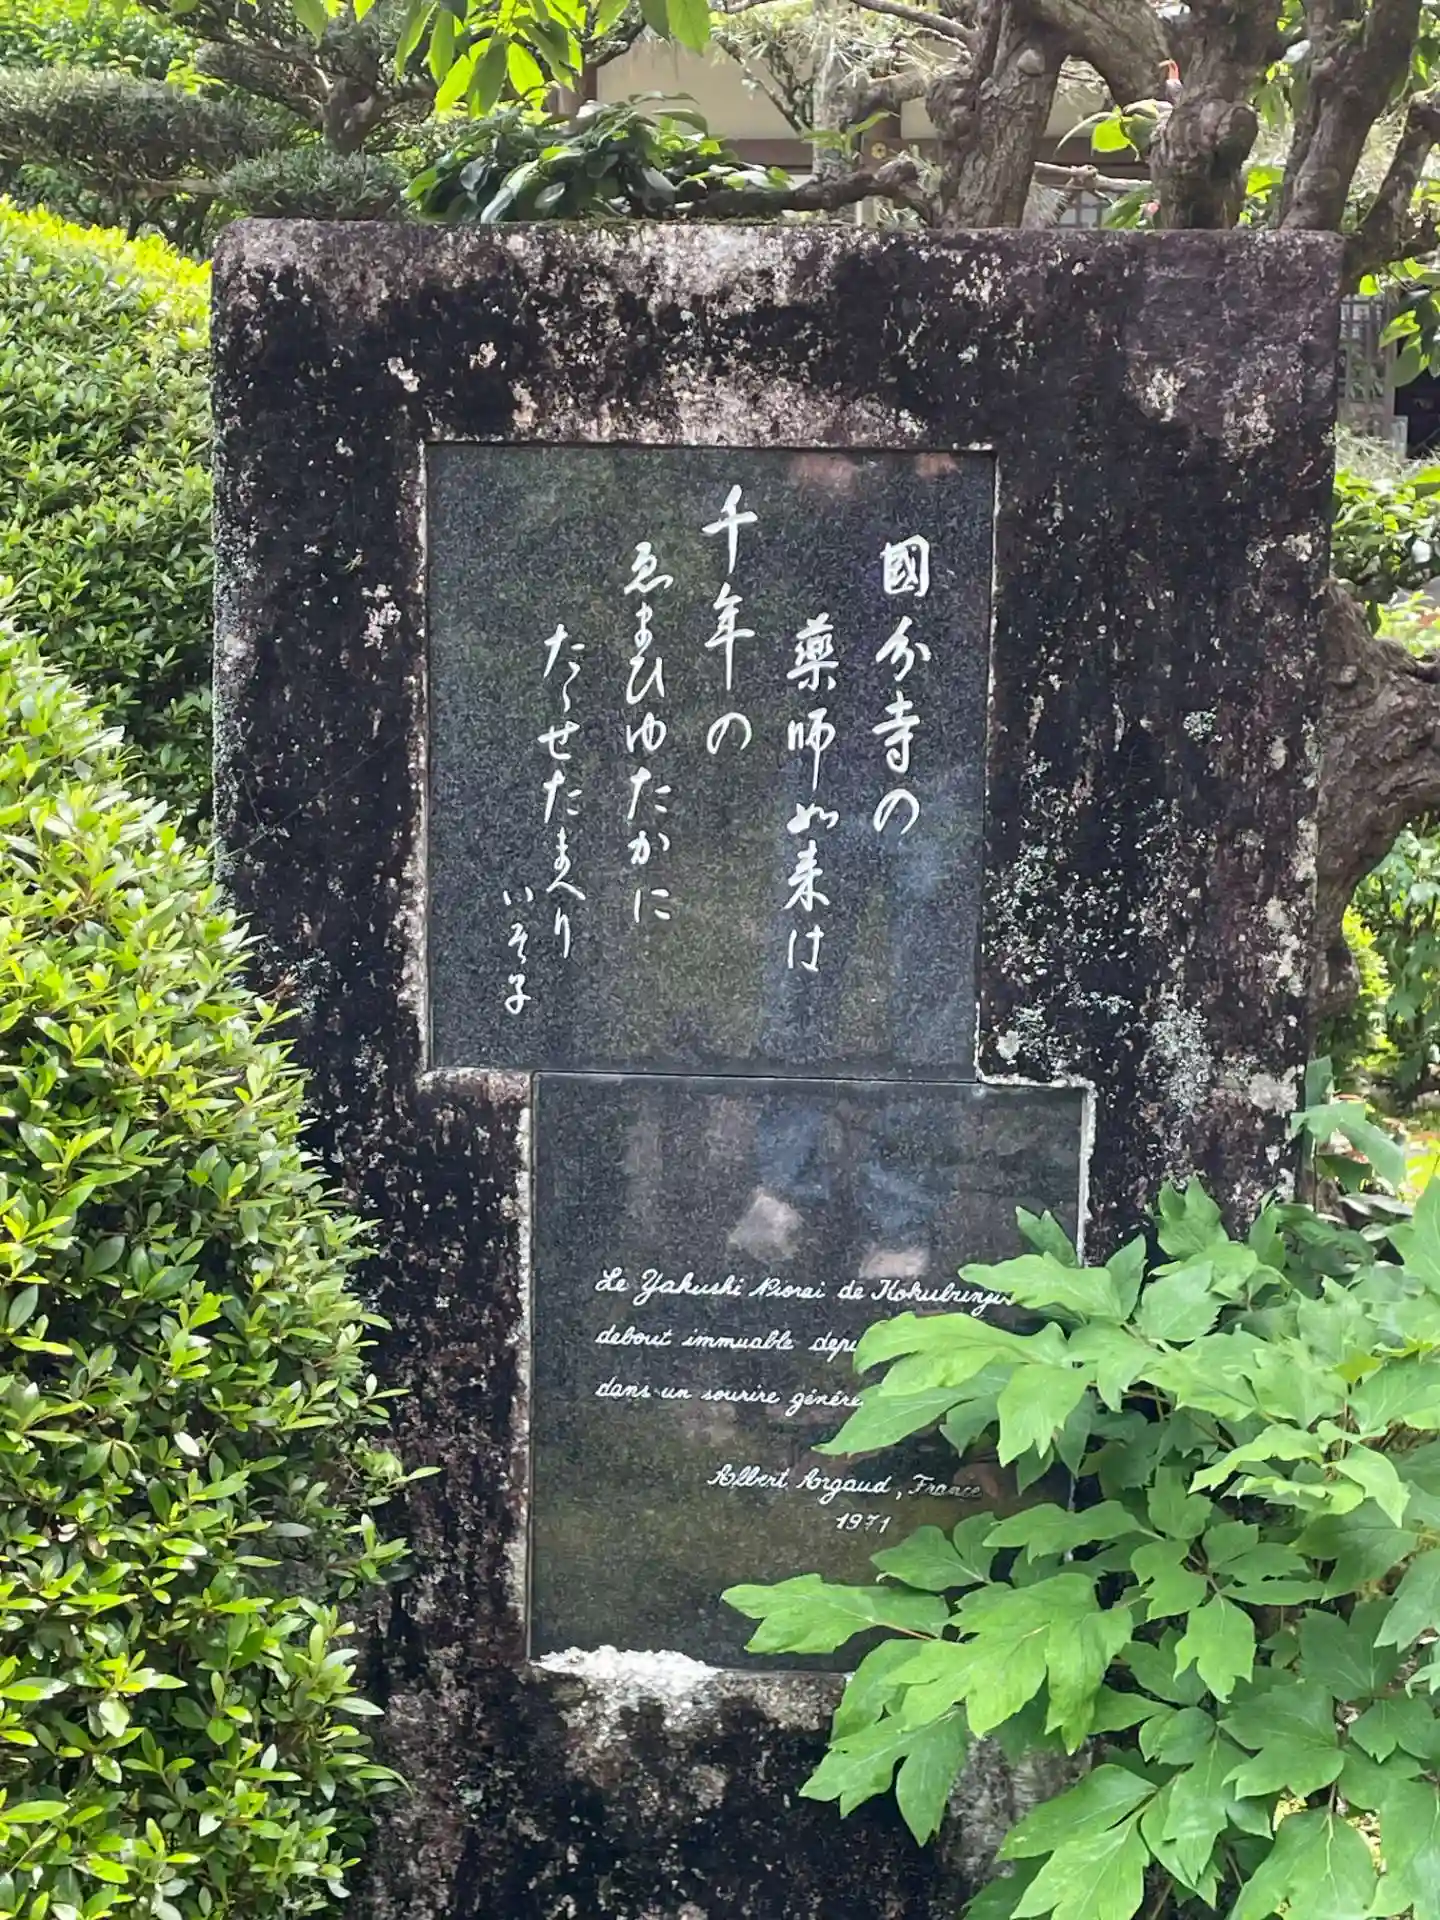 國分寺の
薬師如来は
千年の
ゑまひゆたかに
たゝせたまへり
いそ子
Le Yakushi Niorai de Kokubunji
debout immuable
dans un sourire
Albert Argaud, France
1971